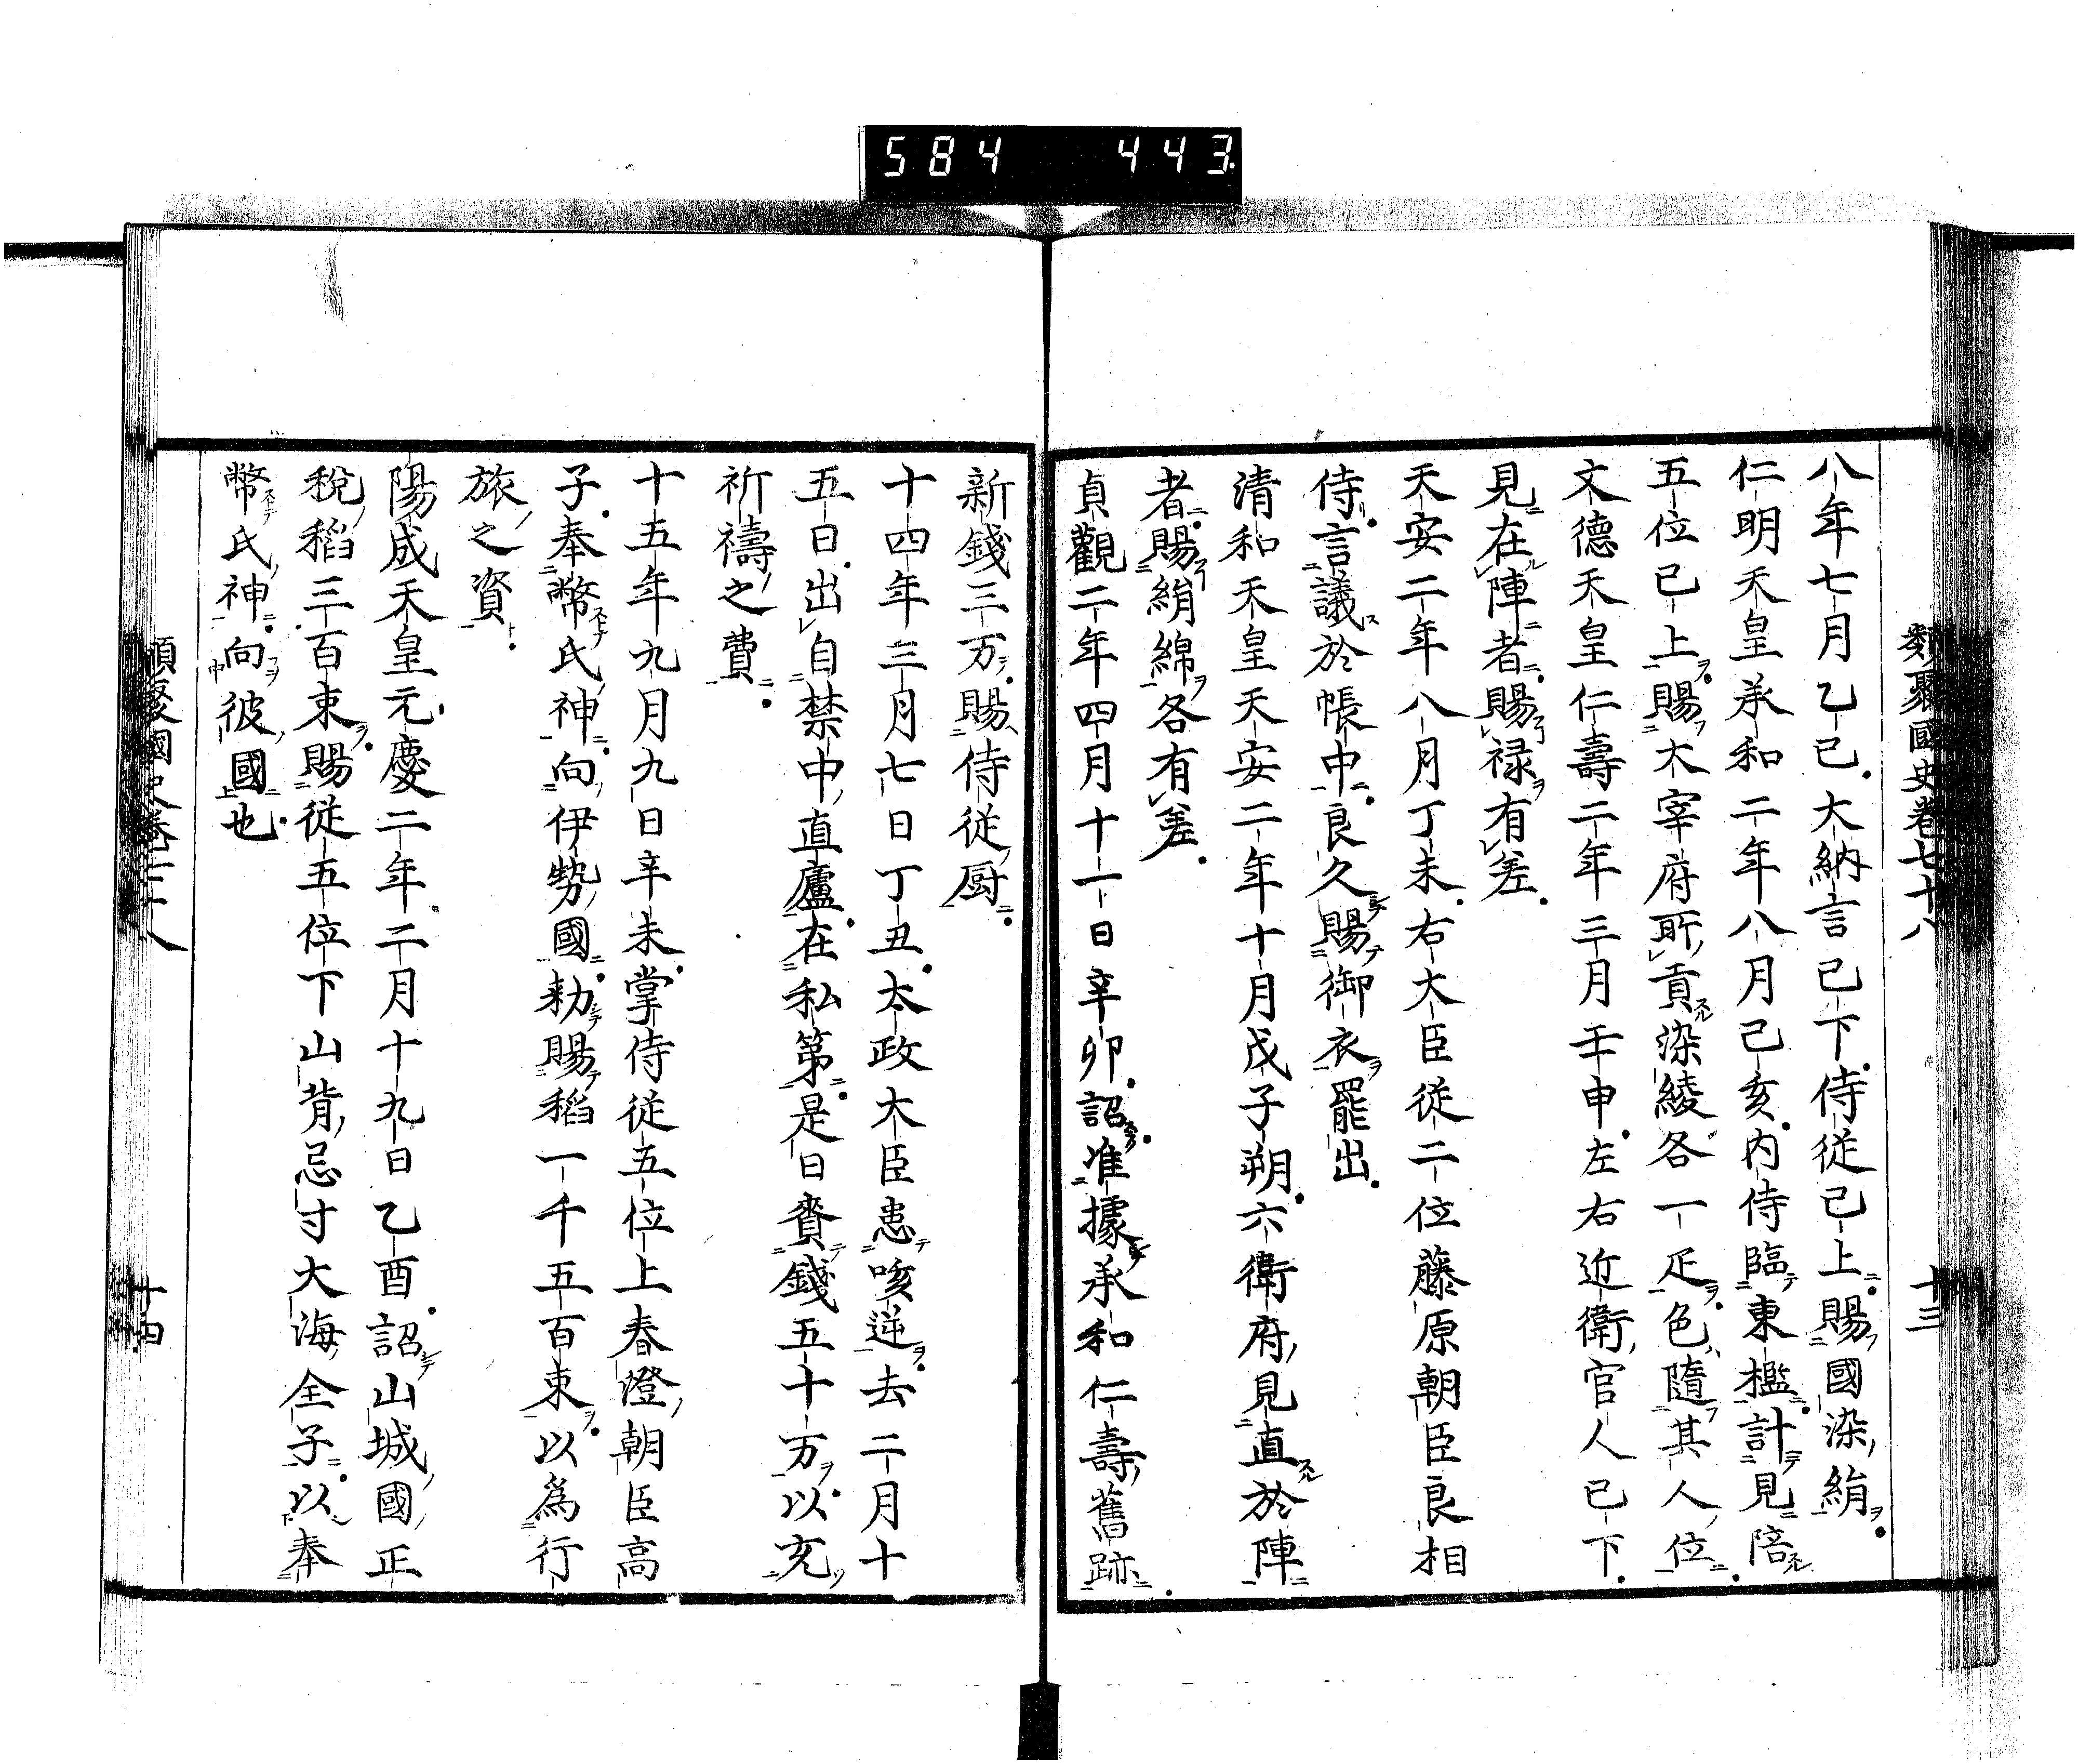 584 443
類聚國史卷七十八 十三
八年七月乙巳大納言已下侍從已上賜國染絹
仁明天皇承和二年八月己亥內侍臨東檻計見陪
五位已上賜大宰府所貢染綾各一疋色隨其人位
文德天皇仁壽二年三月壬申左右近衛官人已下
見在陣者賜禄有差
天安二年八月丁未右大臣從二位藤原朝臣良相
侍言議於帳中良久賜御衣罷出
清和天皇天安二年十月戊子朔六衛府見直於陣
者賜絹綿各有差
貞觀二年四月十一日辛卯詔准據承和仁壽舊跡
新錢三万賜侍從厨
十四年三月七日丁丑太政大臣患咳逆去二月十
五日出自禁中直廬在私第是日賚錢五十万以充
祈禱之費
十五年九月九日辛未掌侍從五位上春澄朝臣高
子奉幣氏神向伊勢國勅賜稻一千五百束以爲行
旅之資
陽成天皇元慶二年二月十九日乙酉詔山城國正
稅稻三百束賜從五位下山背忌寸大海全子以奉
幣氏神向彼國也
類聚國史卷七十八 十四